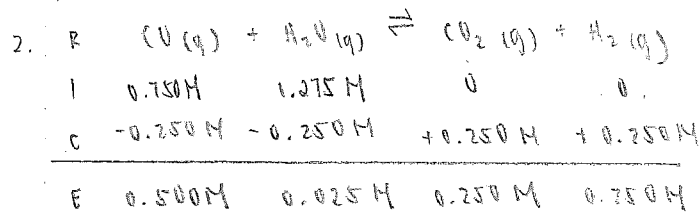 2. R CO(g) + H₂O(g) ⇌ CO₂(g) + H₂(g)
I 0.750M 1.275M 0 0.
C -0.250M -0.250M +0.250M +0.250M
E 0.500M 0.025M 0.250M 0.250M